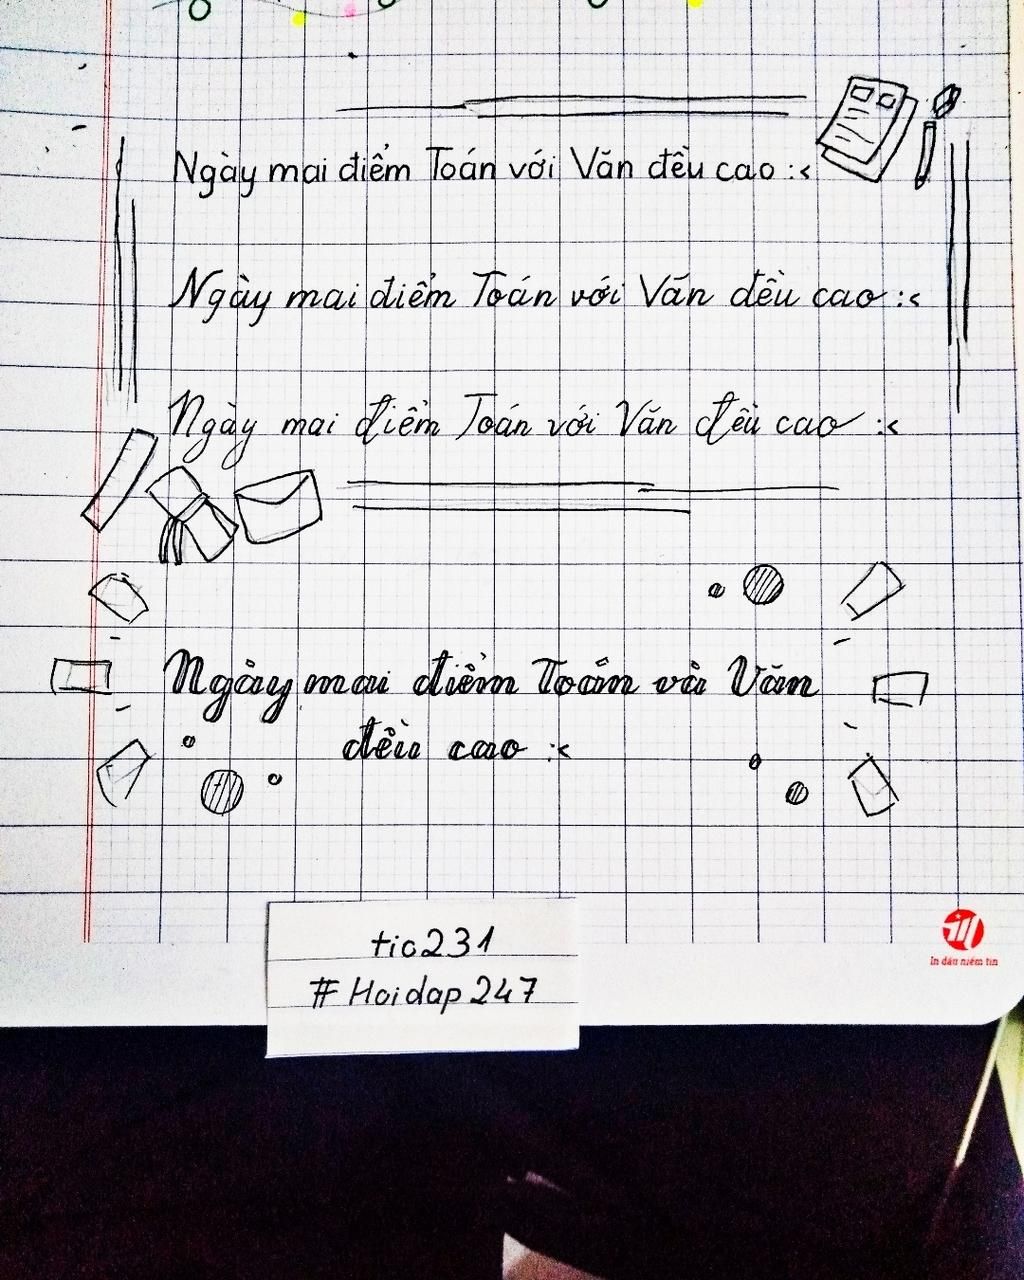 Ngày mai điểm Toán với Văn đều cao :<
Ngày mai điểm Toán với Văn đều cao :<
Ngày mai điểm Toán với Văn đều cao :<
Ngày mai điểm Toán và Văn
đều cao :<
tic231
#Hoidap247
In dấu niềm tin